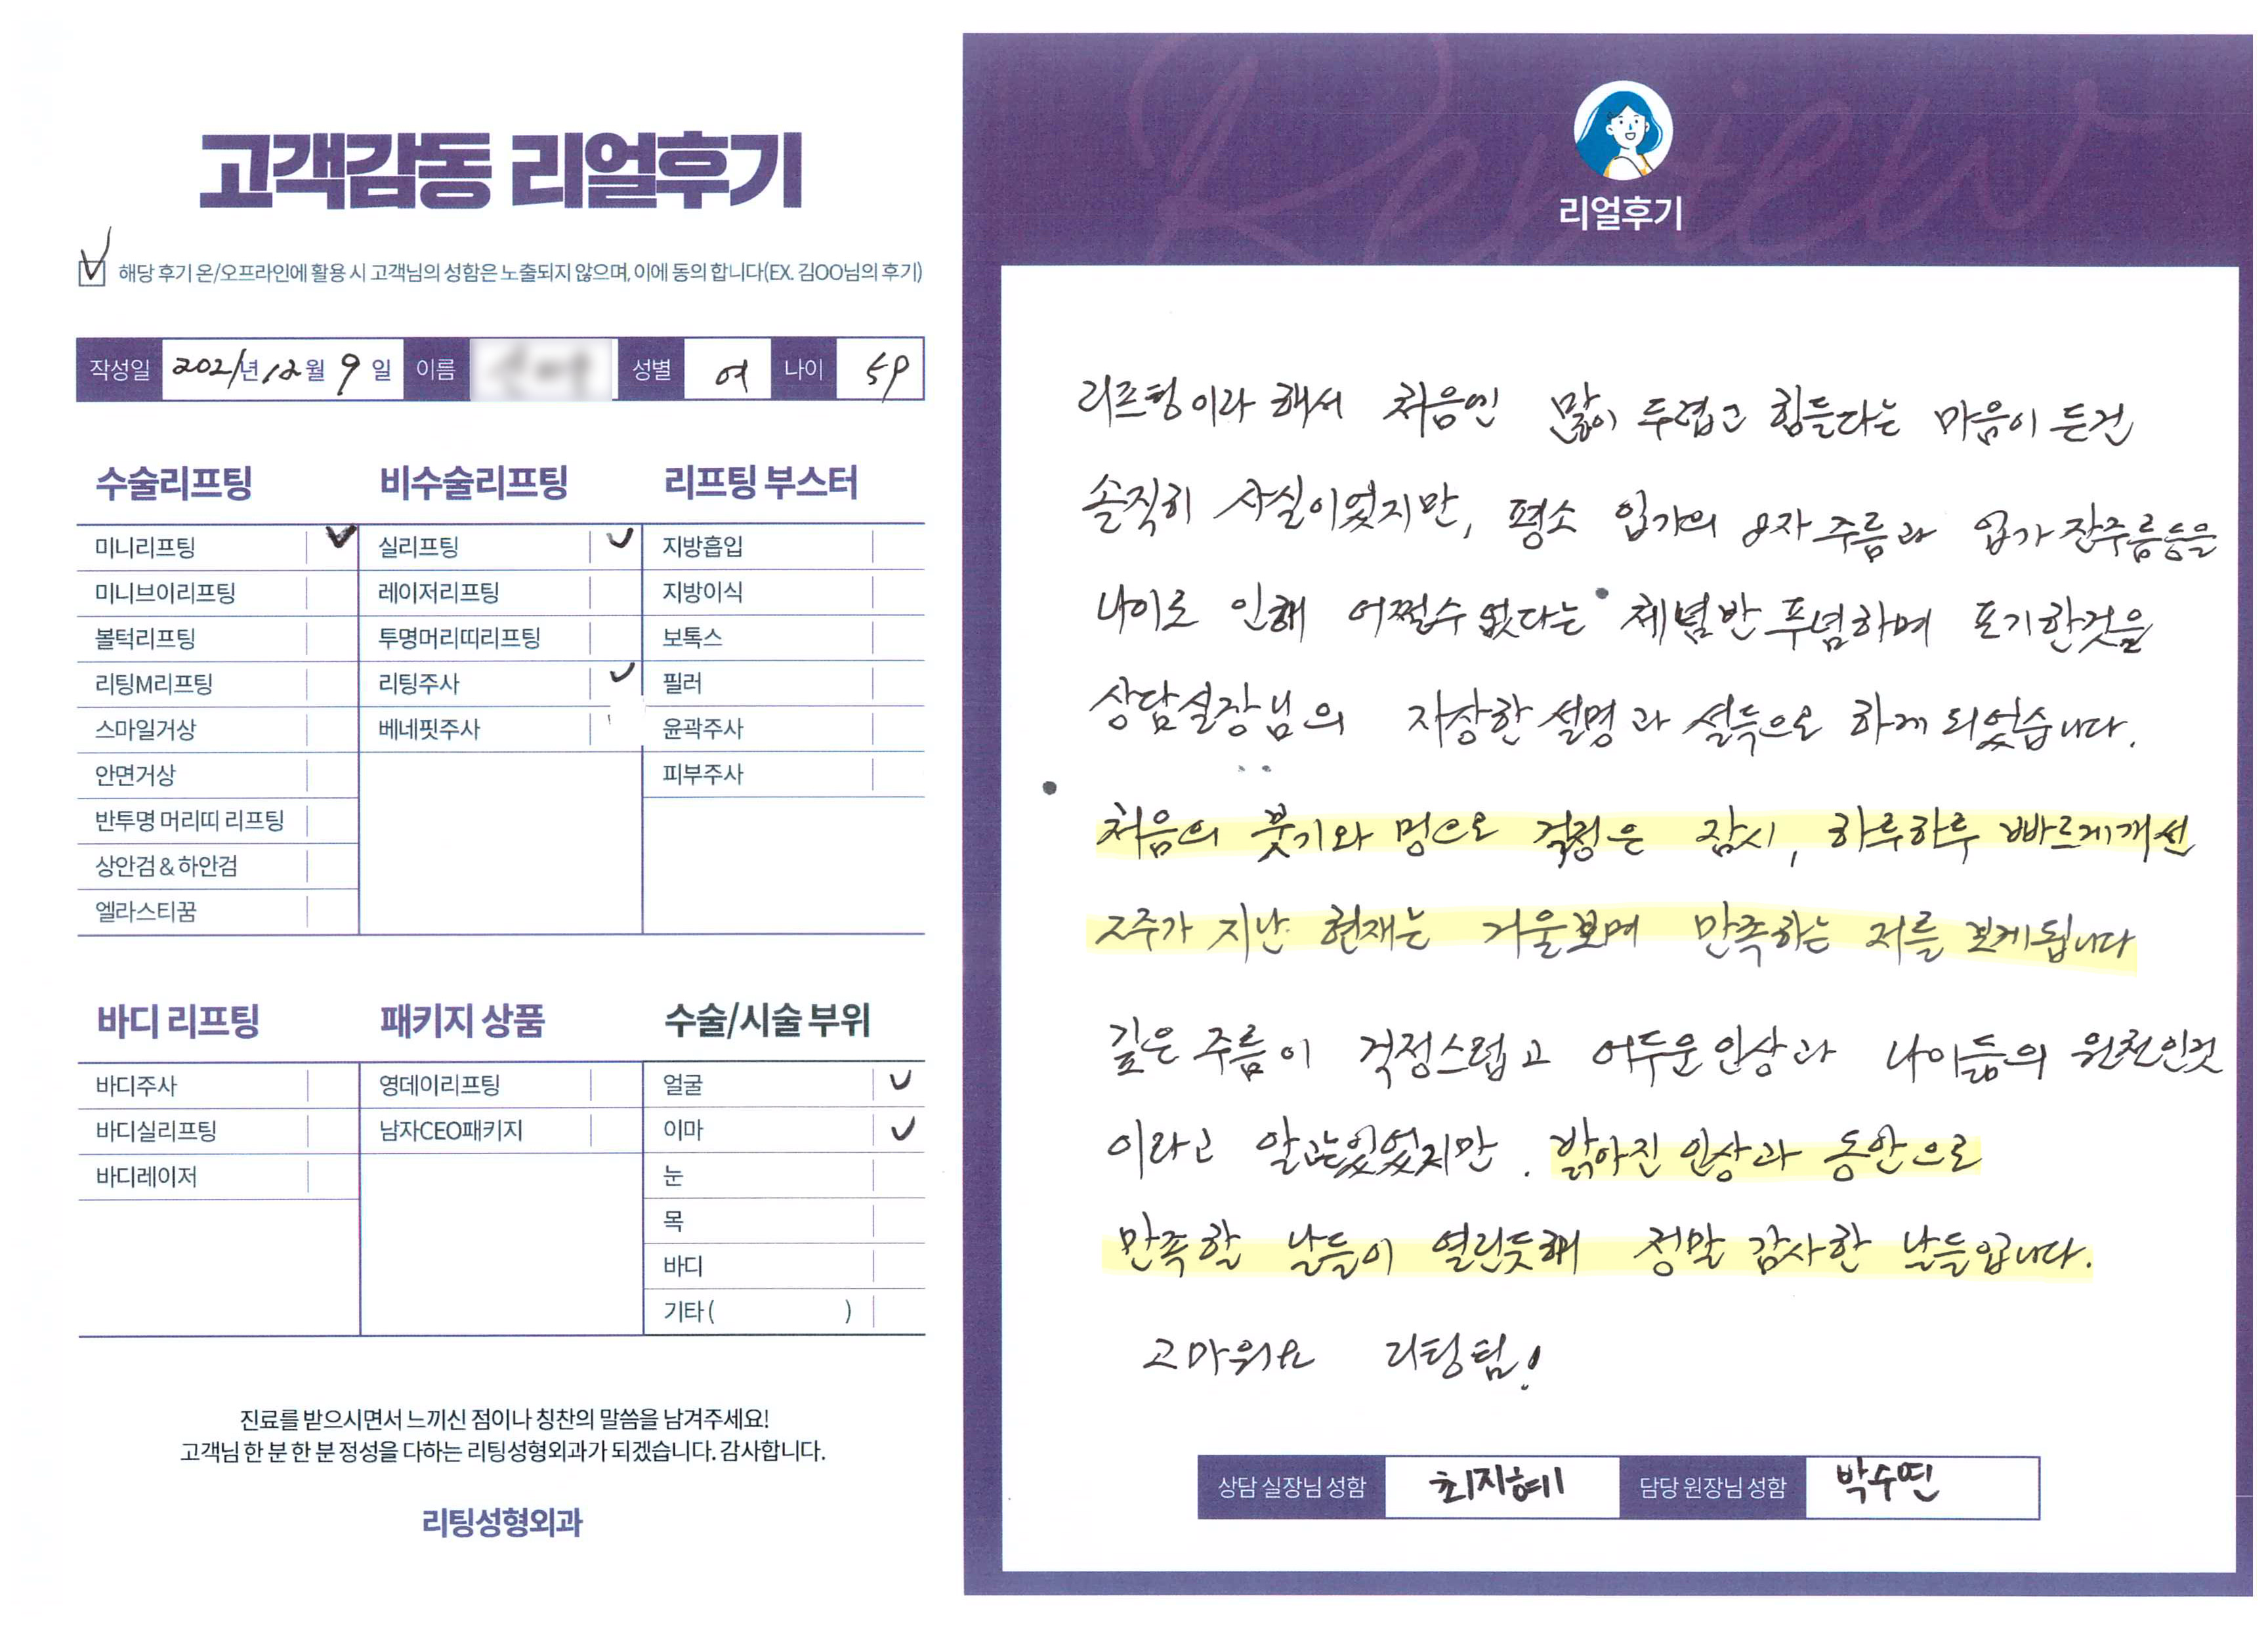 고객감동 리얼후기
해당 후기 온/오프라인에 활용 시 고객님의 성함은 노출되지 않으며, 이에 동의 합니다(EX. 김OO님의 후기)
작성일 2021년 12월 9일 이름 성별 여 나이 59
수술리프팅
미니리프팅
미니브이리프팅
볼턱리프팅
리팅M리프팅
스마일거상
안면거상
반투명 머리띠 리프팅
상안검 & 하안검
엘라스티꿈
비수술리프팅
실리프팅
레이저리프팅
투명머리띠리프팅
리팅주사
베네핏주사
리프팅 부스터
지방흡입
지방이식
보톡스
필러
윤곽주사
피부주사
바디 리프팅
바디주사
바디실리프팅
바디레이저
패키지 상품
영데이리프팅
남자CEO패키지
수술/시술 부위
얼굴
이마
눈
목
바디
기타 ( )
진료를 받으시면서 느끼신 점이나 칭찬의 말씀을 남겨주세요!
고객님 한 분 한 분 정성을 다하는 리팅성형외과가 되겠습니다. 감사합니다.
리팅성형외과
Review
리얼후기
리프팅이라 해서 처음인 많이 두렵고 힘들다는 마음이 든건
솔직히 사실이었지만, 평소 입가의 8자 주름과 입가 잔주름등을
나이로 인해 어쩔수 없다는 체념반 푸념하며 포기한것을
상담실장님의 자상한 설명과 설득으로 하게 되었습니다.
처음의 붓기와 멍으로 걱정은 잠시, 하루하루 빠르게개선
2주가 지난 현재는 거울보며 만족하는 저를 보게됩니다
깊은 주름이 걱정스럽고 어두운인상과 나이듦의 원천인것
이라고 알고는있었지만. 밝아진 인상과 동안으로
만족할 날들이 열린듯해 정말 감사한 날들입니다.
고마워요 리팅팀!
상담 실장님 성함 최지혜 담당 원장님 성함